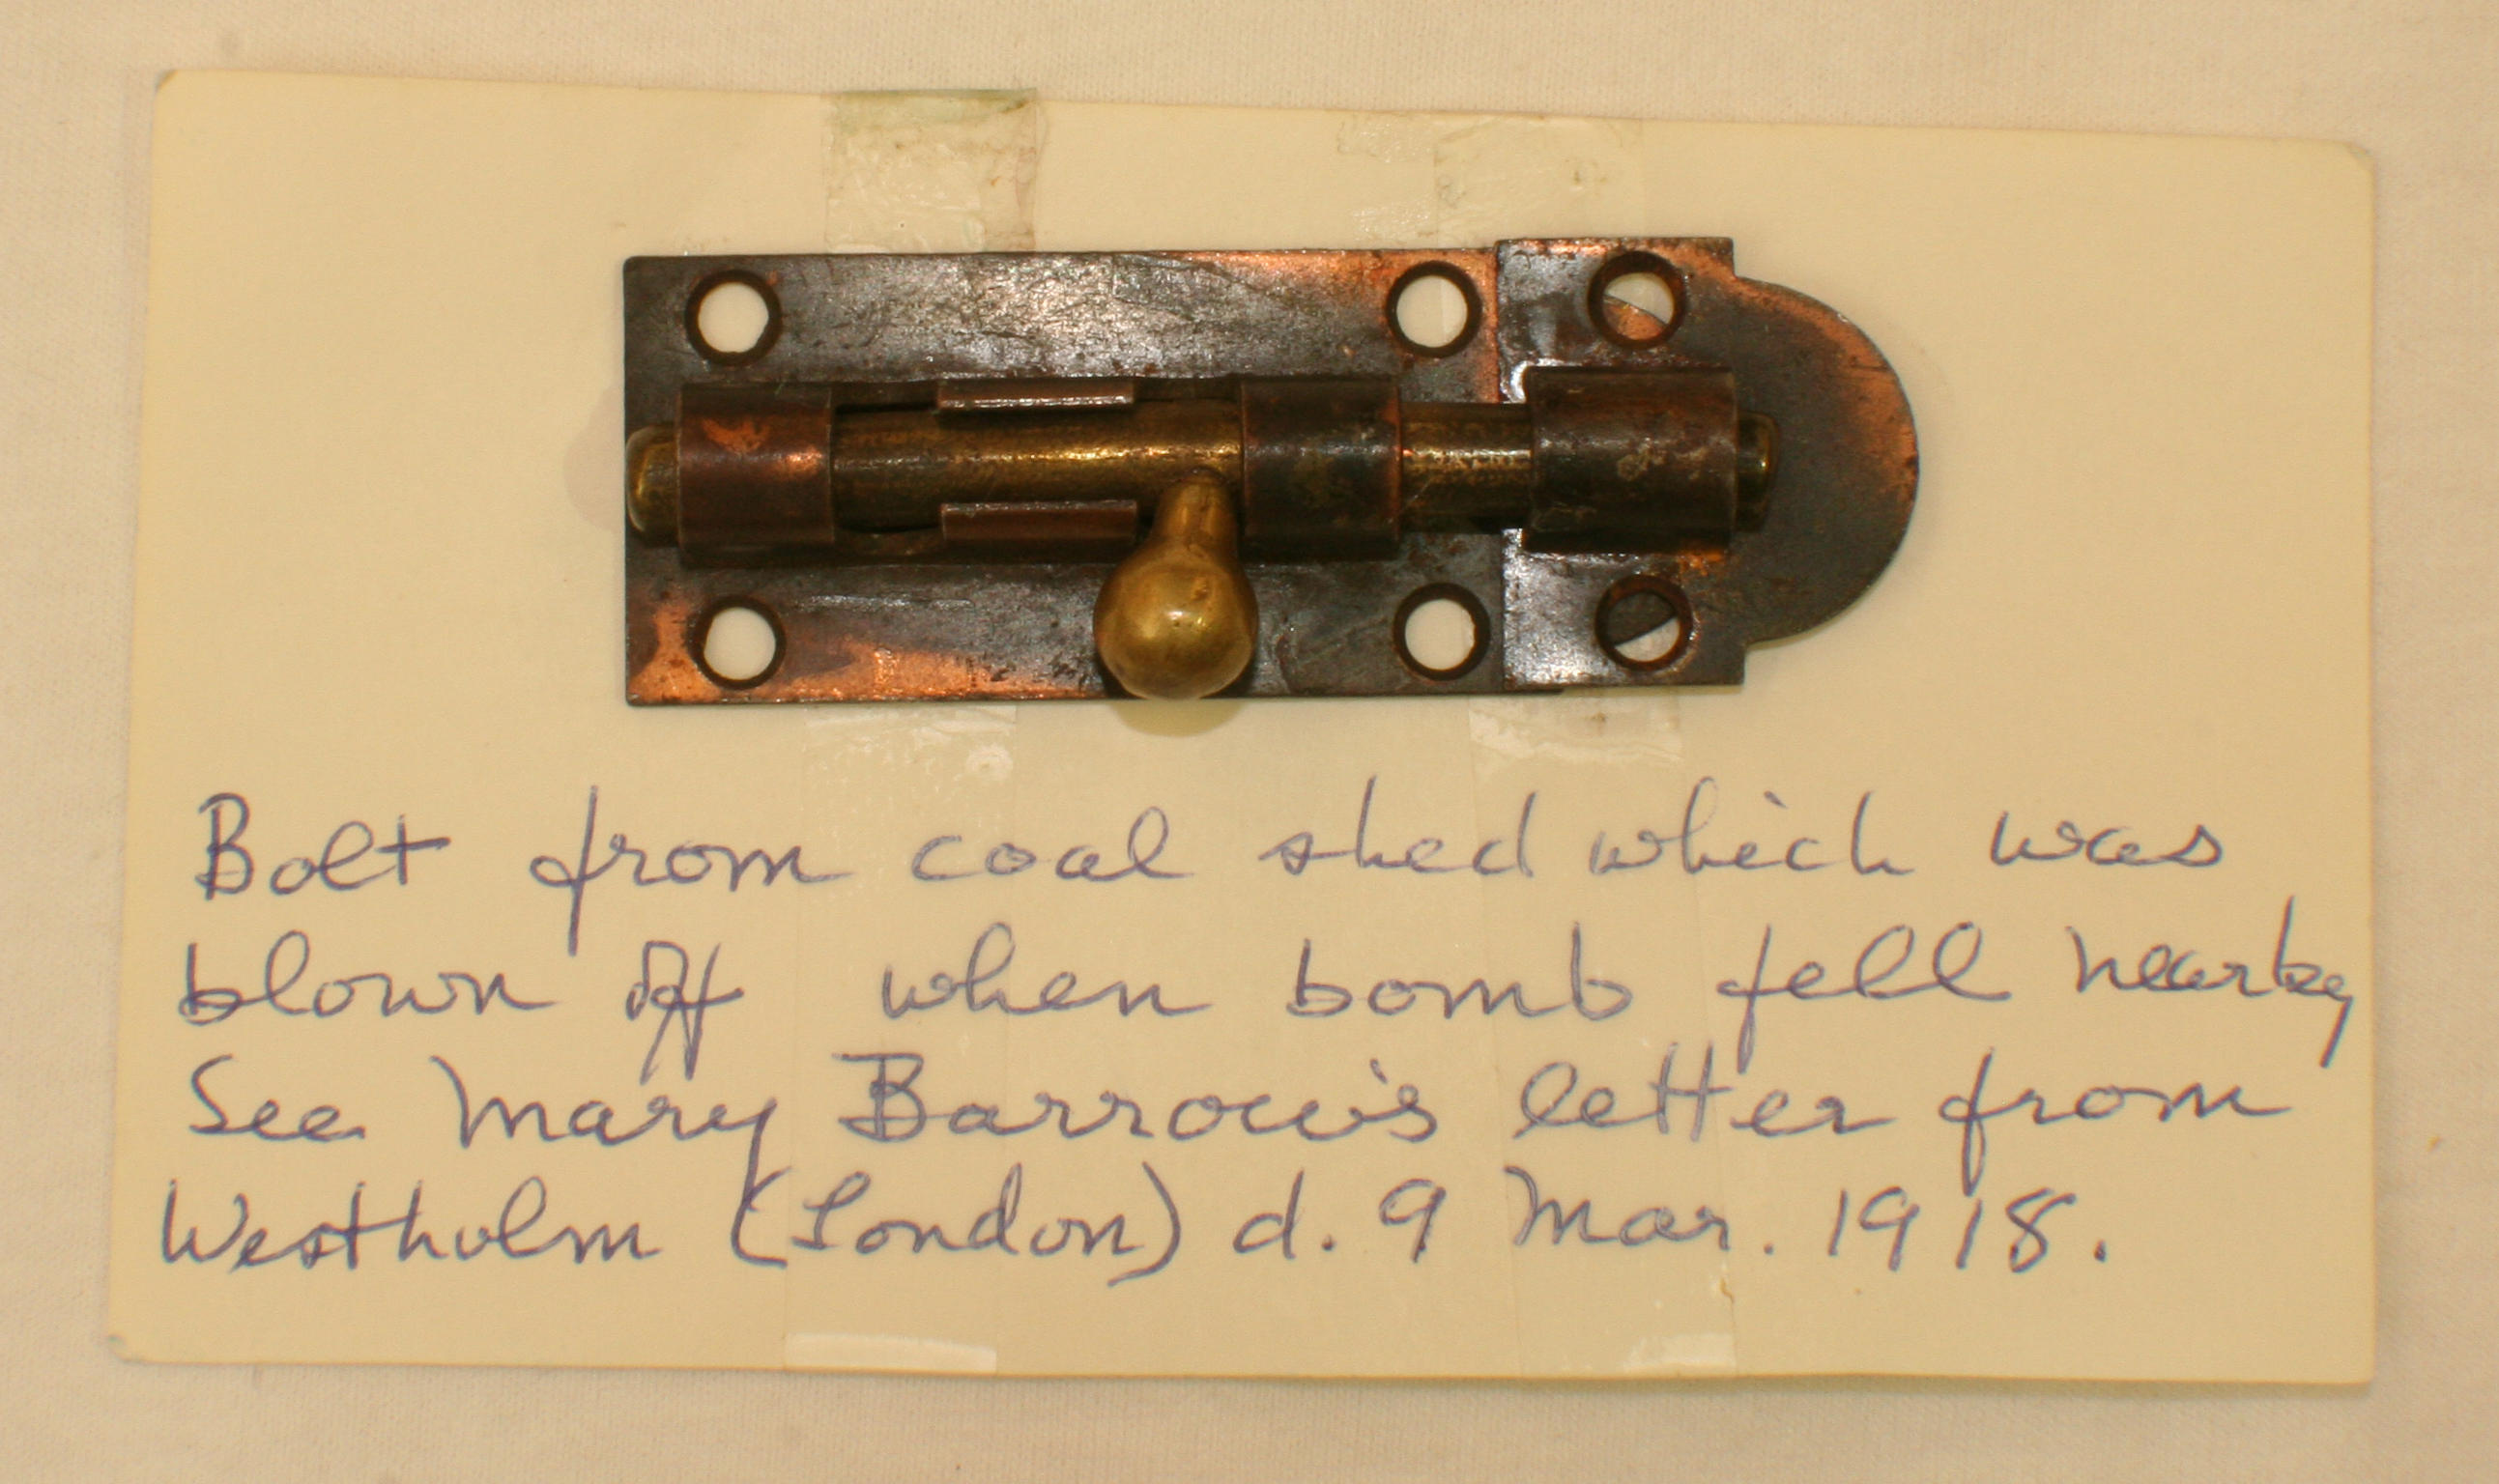 Bolt from coal shed which was
blown off when bomb fell nearby
See Mary Barrow's letter from
Westholm (London) d. 9 Mar. 1918.